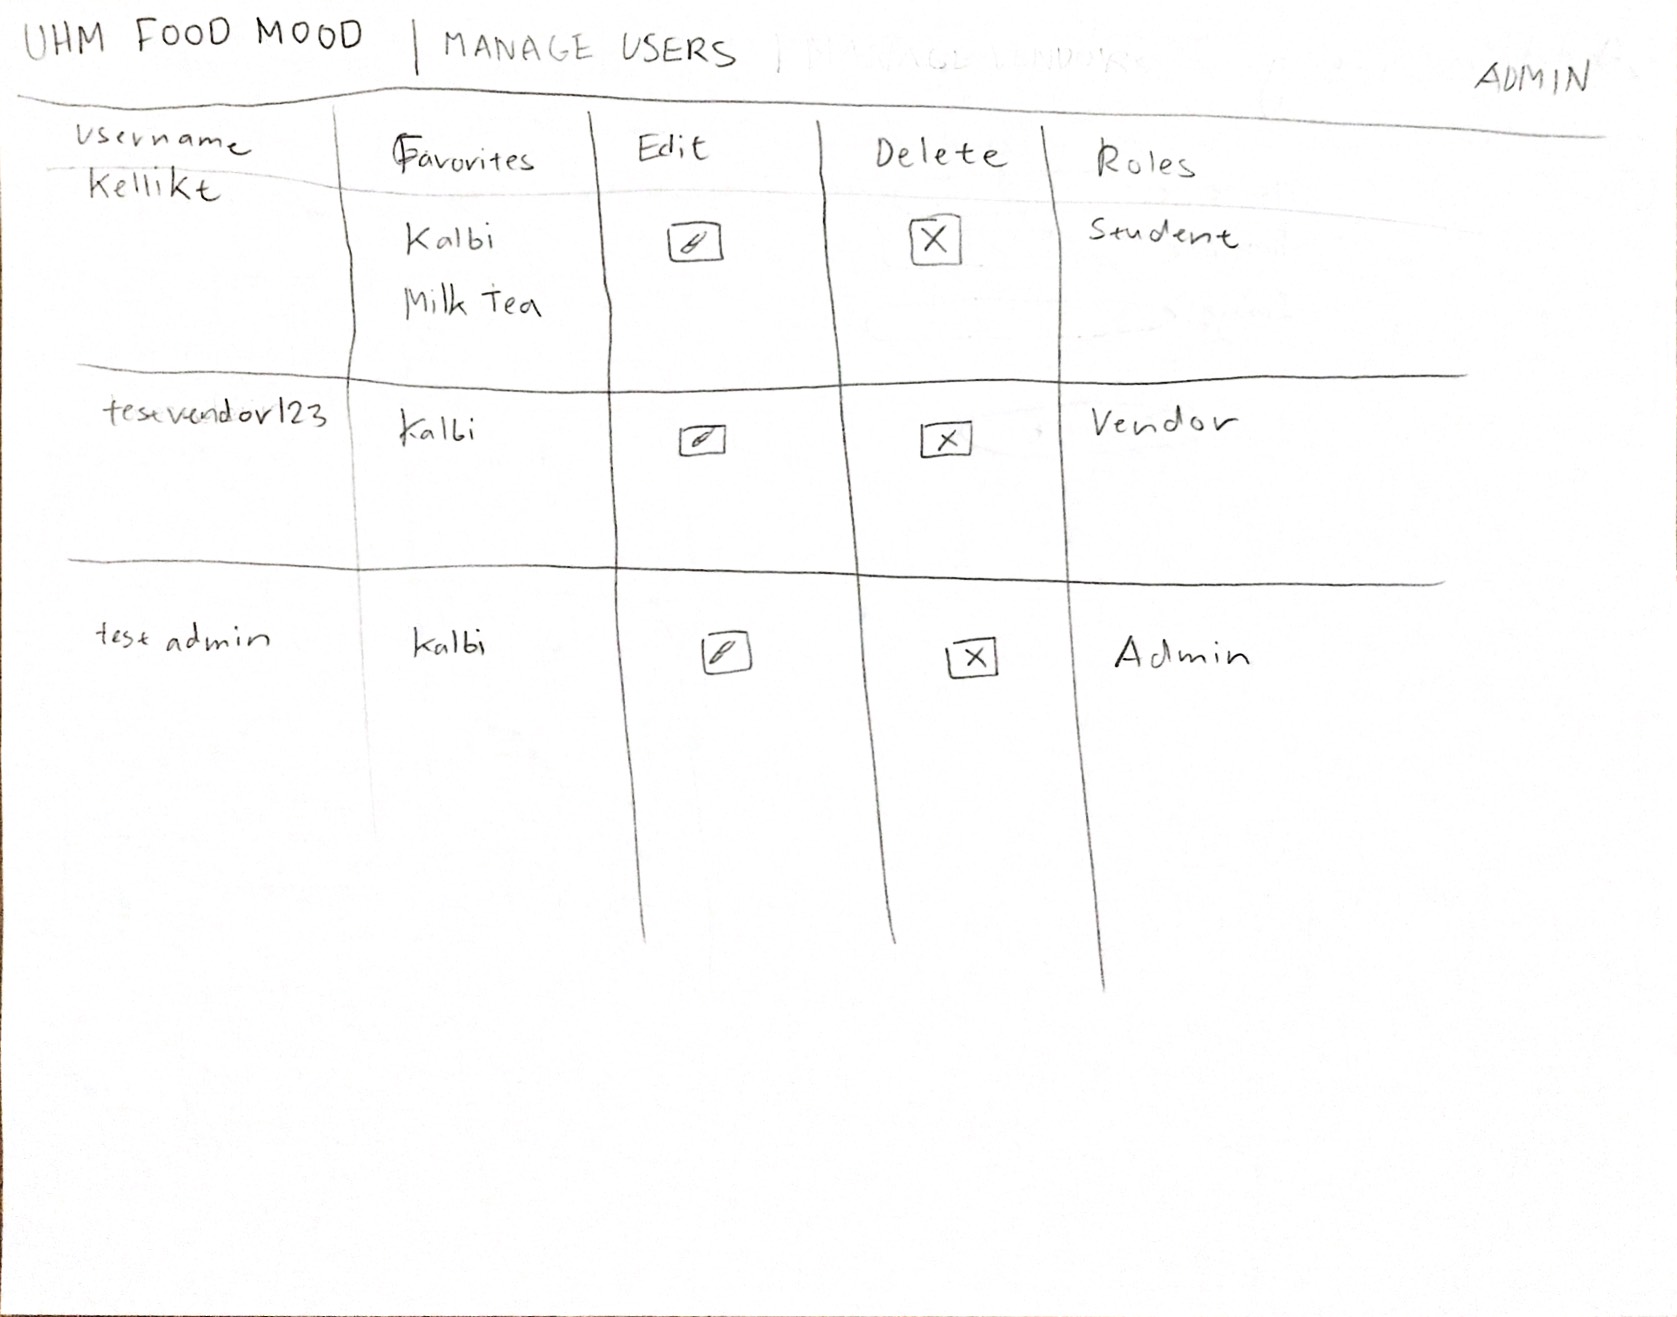 UHM FOOD MOOD | MANAGE USERS
ADMIN
Username Favorites Edit Delete Roles
Kellikt
Kalbi X Student
Milk Tea
testvendor123 Kalbi X Vendor
test admin Kalbi X Admin